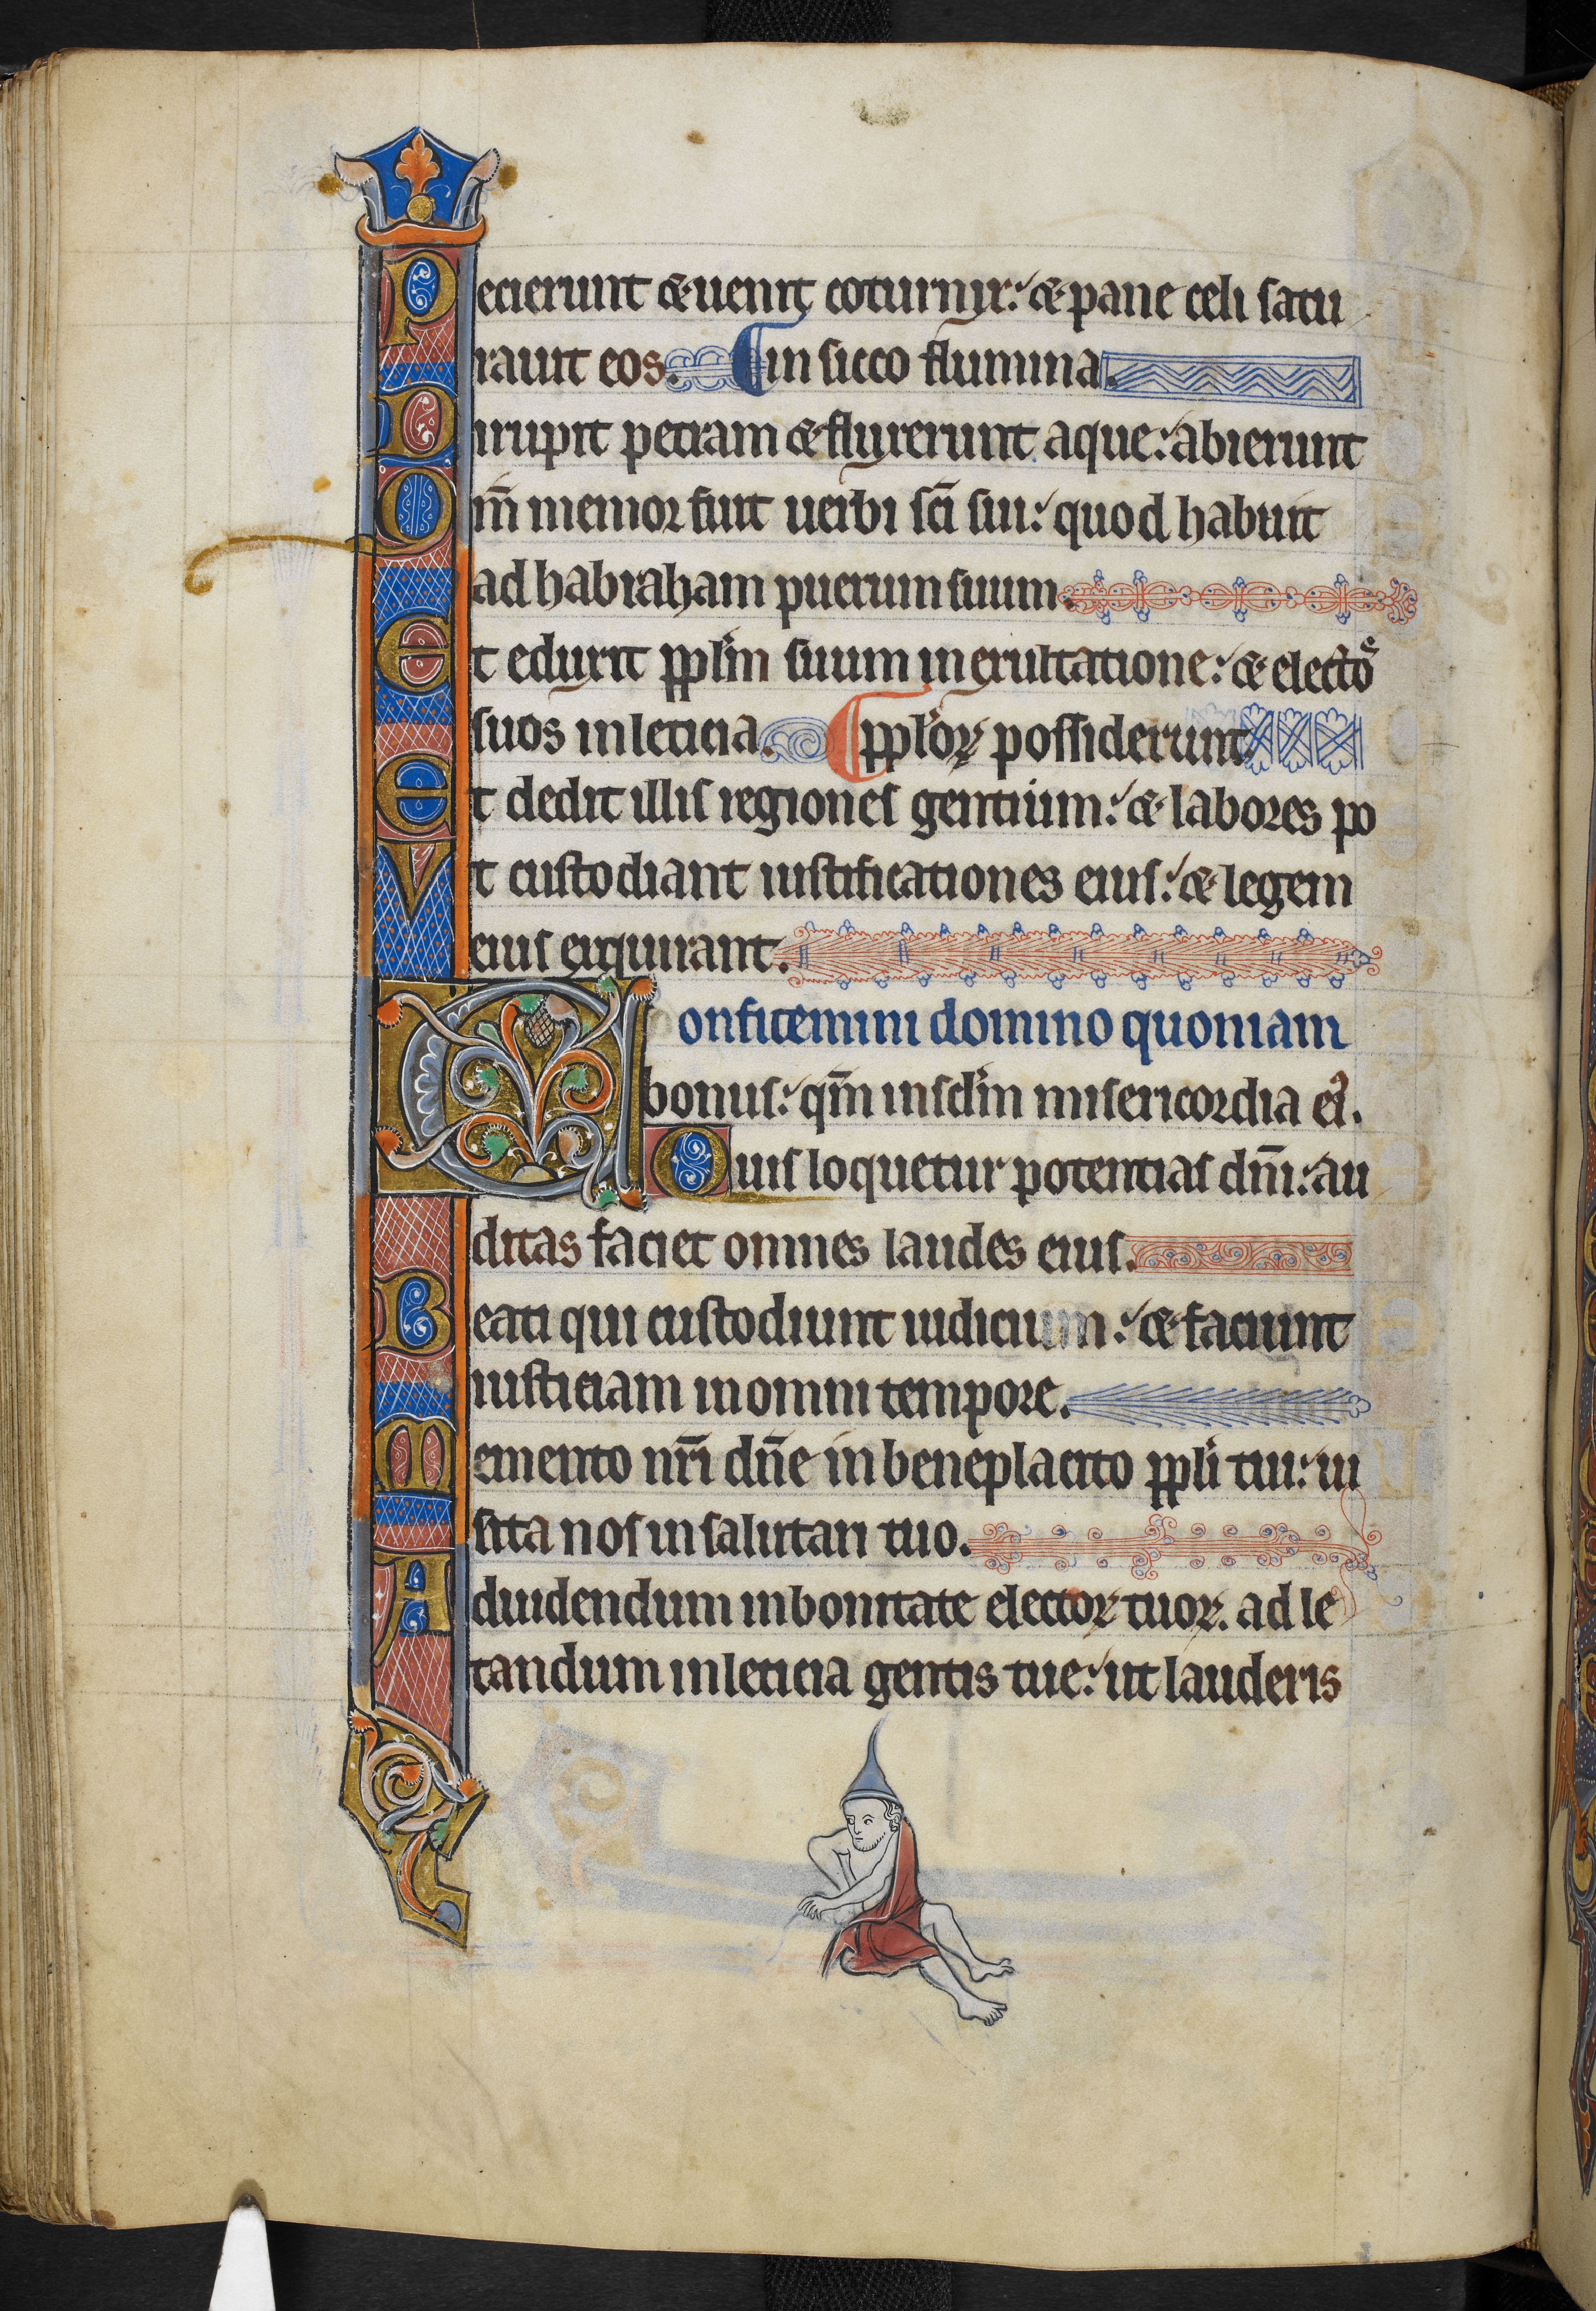 Pecierunt & uenit coturnix: & pane celi satu
rauit eos. ¶ in sicco flumina.
Dirupit petram & fluxerunt aque: abierunt
Qm̄ memor fuit uerbi sc̄i sui: quod habuit
ad habraham puerum suum.
Et eduxit ppl̄m suum in exultatione: & electo
suos in leticia. ¶ ppl̄oꝝ possiderunt.
Et dedit illis regiones gentium: & labores po
Vt custodiant iustificationes eius: & legem
eius exquirant.
Confitemini domino quoniam
bonus: qm̄ in scl̄m misericordia ei᾽.
Quis loquetur potentias dn̄i: au
ditas faciet omnes laudes eius.
Beati qui custodiunt iudicium: & faciunt
iusticiam in omni tempore.
Memento nr̄i dn̄e in beneplacito ppl̄i tui: ui
sita nos in salutari tuo.
Ad uidendum in bonitate electoꝝ tuoꝝ. ad le
tandum in leticia gentis tue: ut lauderis